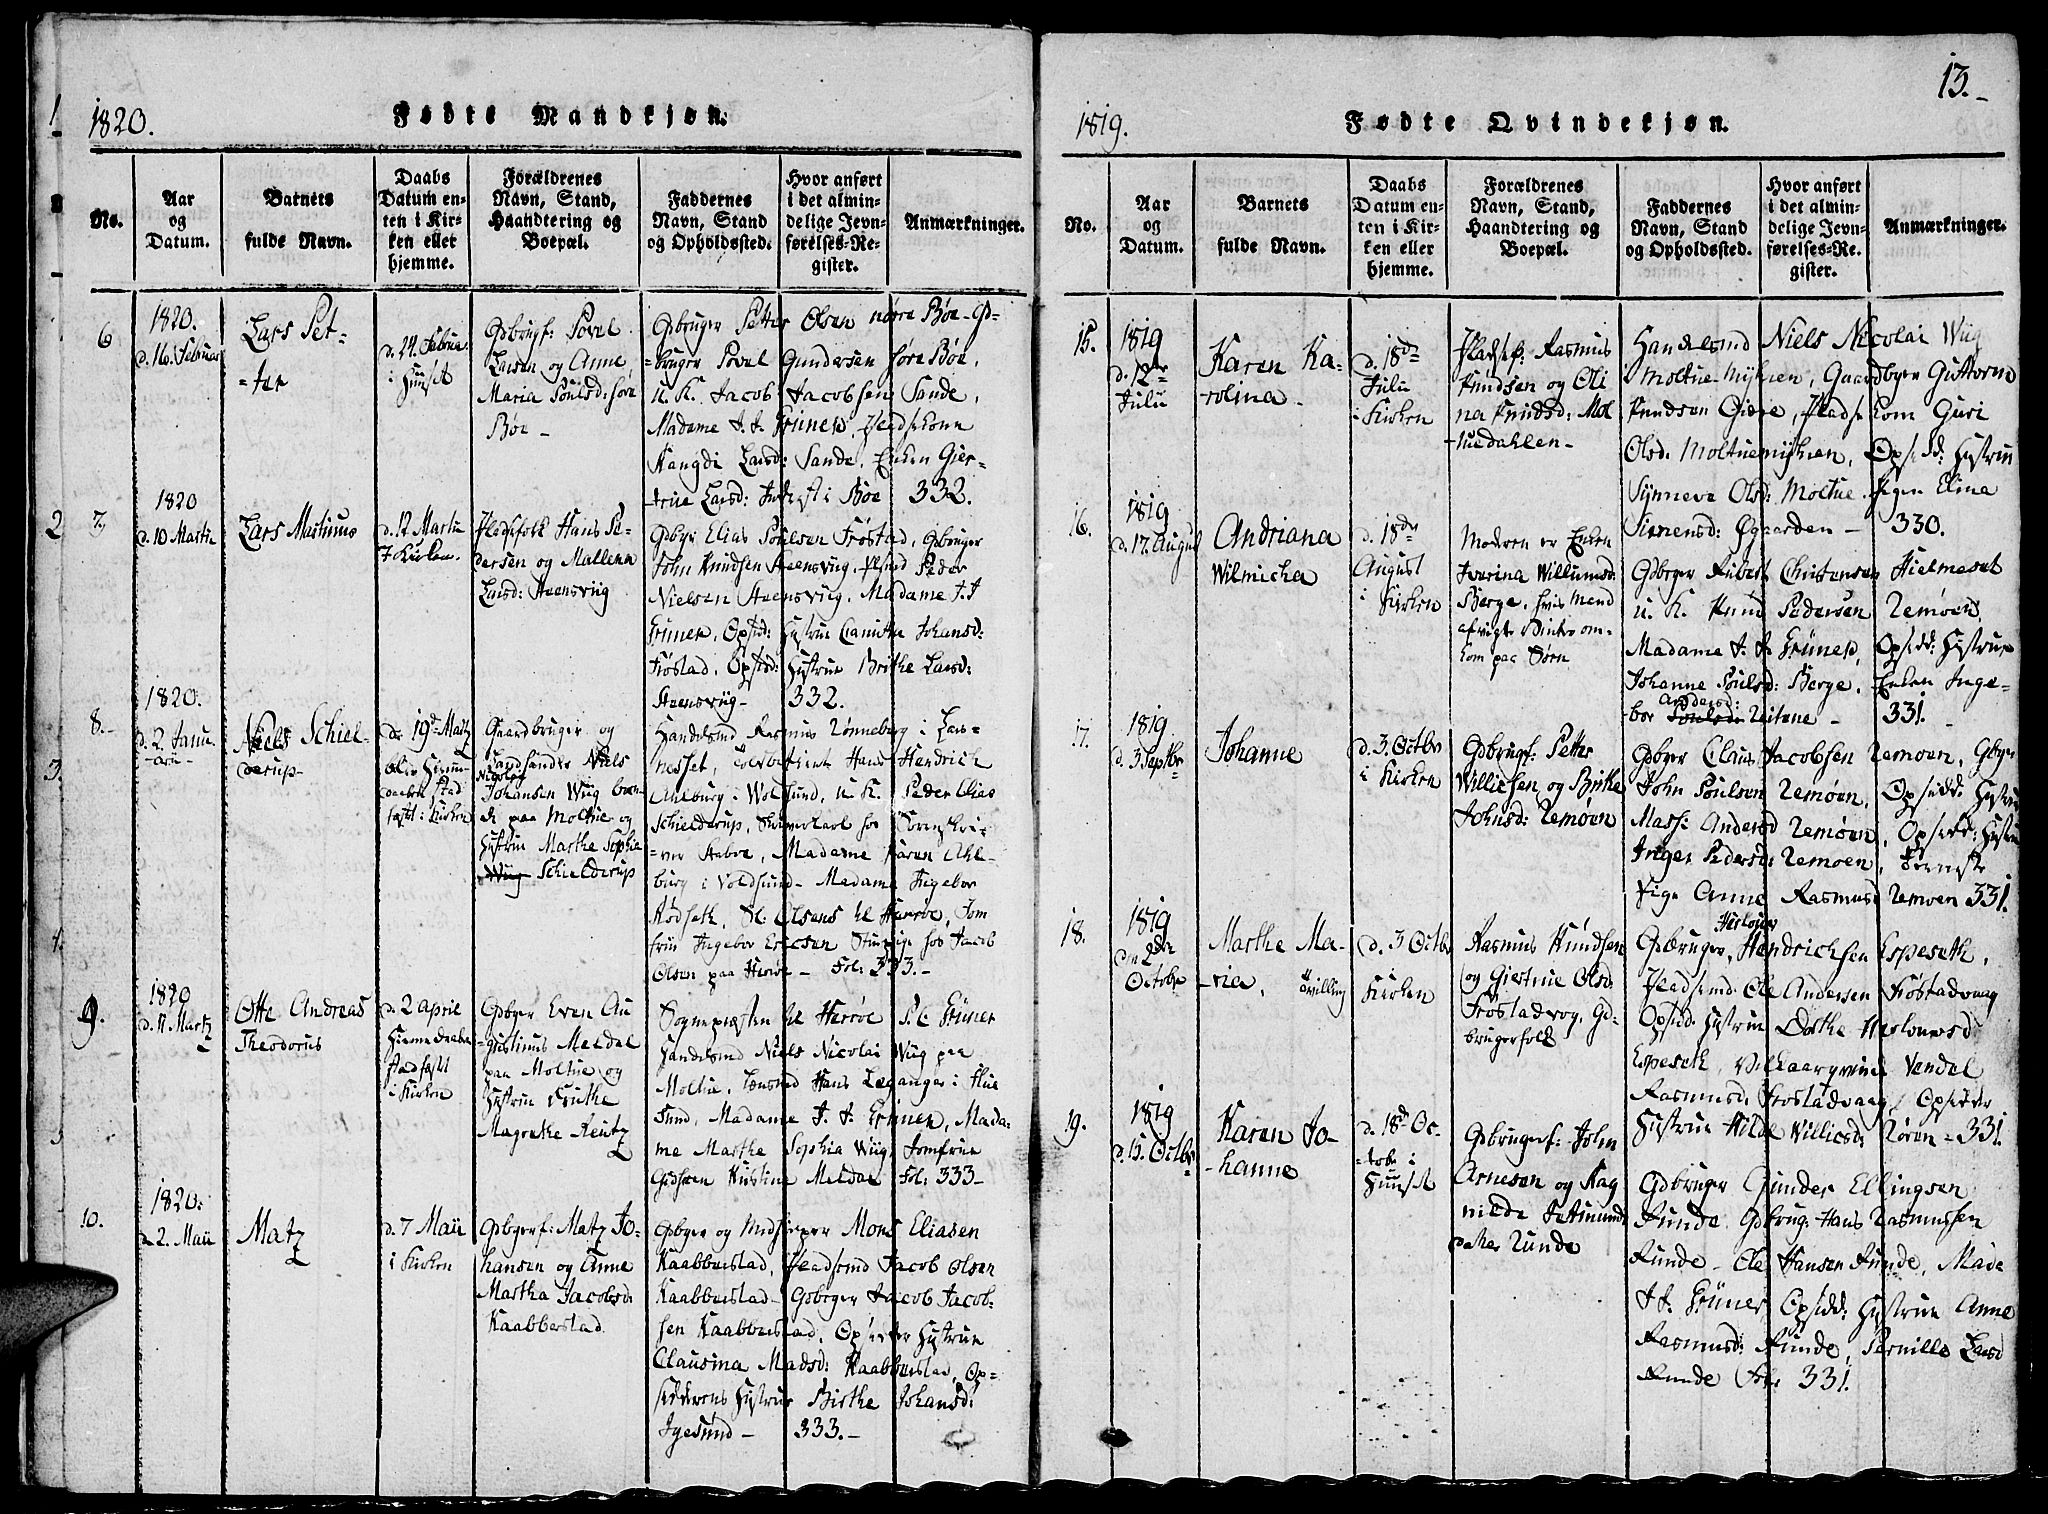 1820.
Fødte Mandkjøn.
No.
Aar
og
Datum.
Barnets
fulde Navn.
Daabs
Datum en-
ten i Kir-
ken eller
hjemme.
Forældrenes
Navn, Stand,
Haandtering og
Boepæl.
Faddernes
Navn, Stand
og Opholdssted.
Hvor anført
i det almin-
delige Jevn-
førelses-Re-
gister.
Anmærkninger.
6
1820.
d. 16. Februar
Lars Pet-
-ter
d. 24. Februa:
i Huuset
Gdbrugf: Povel
Larsen og Anne
Maria Poulsd: søre
Bøe -
Gdbruger Petter Olsen nørre Bøe - Gd-
-bruger Povel Gundersen søre Bøe,
u. K. Jacob Jacobsen Sande,
Madame J. J. Grüner, Pladsekone
Larsd: Sande, Enken Gier-
true Larsd: i Bøe 332.
7
1820
d. 10 Martii
Lars Martinus
d. 12 Martii
i Kirken.
Pladsefolk Hans Pe-
dersen og Mallena
Larsd: Steensviig
Gdbgr Elias Poulsen Frøstad, Gdbruger
John Knudsen Steensviig, Plsmd Peder
Nielsen Steensviig, Madame J. J
Grüner, Opsid: Hustrue Johansd:
Frøstad, Opsid: Hustrue Brithe Larsd:
Steensviig - 332.
8.
1820.
d. 2. Janu
-arii -
Niels Schiel-
derup -
d. 19d Martz
blev Hiemme-
daaben stad
fæstet i Kirken
Gaardbruger og
Landhandler Niels
Nicolay
Johansen Wiig boen-
de paa Moltue og
Hustrue Marthe Sophia
Wiig Schielderup
Handelsmd Rasmus Rønneberg i Lars-
nesset, Toldbetient Hans Hendrich
Ahlburg i Wolsund, u. K. Peder Elias
Schielderup, Skriverkarl hos Sorenskri-
-ver Aaboe, Madame Karen Ahl-
burg i Voldsund - Madame Ingebor
Rødseth, Sl: Olsens til Herrøe, Jom
frue Ingebor Ericsen Stuepige hos Jacob
Olsen paa Herøe - Fol: 333. -
9.
1820
d. 11. Martz
Otto Andreas
Theodorus
d. 2 April
Hiemmedaaben
stadfæst
i Kirken
Gdbgr Even Au
-gustinus Meldal
paa Moltue og
Hustrue Grithe
Magrethe Reutz
Sognepræsten til Herrøe P. C. Grüner
Handelsmd Niels Nicolai Wiig paa
Moltue, Lænsmd Hans Leganger i Flue
sund, Madame J. J. Grüner, Mada-
me Marthe Sophia Wiig, Jomfrue
Kirstine Meldal Fol: 333 -
10.
1820.
d. 2. Maii
Matz
d. 7 Maii
i Kirken
Gdbgrf: Matz Jo-
hansen og Anne
Martha Jacobsd:
Kaabberstad
Gdbgr og Medhielper Mons Eliasen
Kaabberstad, Pladsemd Jacob Olsen
Kaabberstad - Gdbgr Jacob Jacob-
sen Kaabberstad, Opsidder Hustrue
Clausina Madsd: Kaabberstad, Op-
sidderens Hustrue Birthe Johansd:
Igesund - 333. -
13. -
1819.
Fødte Qvindekjøn.
No.
Aar
og
Datum.
Barnets
fulde Navn.
Daabs
Datum en-
ten i Kir-
ken eller
hjemme.
Forældrenes
Navn, Stand,
Haandtering og
Boepæl.
Faddernes
Navn, Stand
og Opholdssted.
Hvor anført
i det almin-
delige Jevn-
førelses-Re-
gister.
Anmærkninger.
15.
1819
d. 12te
Julii
Karen Ka-
-rolina -
d. 18de
Julii
i Kirken
Pladsef: Rasmus
Knudsen og Oli
na Knudsd: Mol
-tuedahlen -
Handelsmd Niels Nicolai Wiig
i Moltue-Myhren, Gaardbgr Guttorm
Knudsen Giære, Pladsekone Guri
Olsd. Moltuemyhren, Opsidd: Hustrue
Synneva Olsd: Moltue. Pigen Elina
Simensd: Øgaarden - 330.
16.
1819
d. 17. August
Andriana
Wilmicha
d. 18de
August
i Kirken
Moderen er Enken
Iverina Willumsd:
Berge, hvis Mand
afvigte Vinter om-
kom paa Søen
Gdbrger Rubert Christensen Hielmeset
u. K. Knud Pedersen Remøen,
Madame J. J. Grüner, Opsidd: Hustrue
Johanne Poulsd: Berge, Enken Inge-
Andersd:
-bor Poulsd: Reitene - 331. -
17.
1819
d. 3 Septbr
Johanne
d. 3. Octbr
i Kirken
Gdbrugf: Petter
Willicksen og Brithe
Johnsd: Remøen
Gdbgr Claus Jacobsen Remøen, Gdbgr
John Poulsen Remøen, Opsidd: Hustrue
Massi Andersd Remøen, Opsidd: Hustrue
Inger Pedersd: Remøen, Tieneste
Pige Anne Rasmusd Remøen 331.
18.
1819
den 2den
Octobr
Marthe Ma-
-ria, tvilling
d. 3 Octbr
i Kirken
Rasmus Knudsen
og Giertrue Olsd
Frøstadvog, Gd-
brugerfolk
Herlouer
Gdbruger, Hendrichsen Espeseth,
Pladsemd: Ole Andersen Frøstadvaag
Opsid: Hustrue Dorthe Herlouersd
Espeseth, Vilkaarqvinde Vendel
Rasmusd: Frostadvaag, Opsidder
Hustrue Hilde Willicsd: Røren - 331.
19.
1819
d. 15. Octbr
Karen Jo-
-hanne
d. 18d Oc-
-tobr i
Huuset
Gdbrugerf: John
Arnesen og Rag
nilde
Runde
Gdbruger Gunder Ellingsen
Runde, Gdbrug: Hans Rasmussen
Runde - Ole Hansen Runde, Made
J J. Grüner, Opsidd: Hustrue Anne
Rasmusd: Runde, Pernille Larsd
Runde Fol: 331.